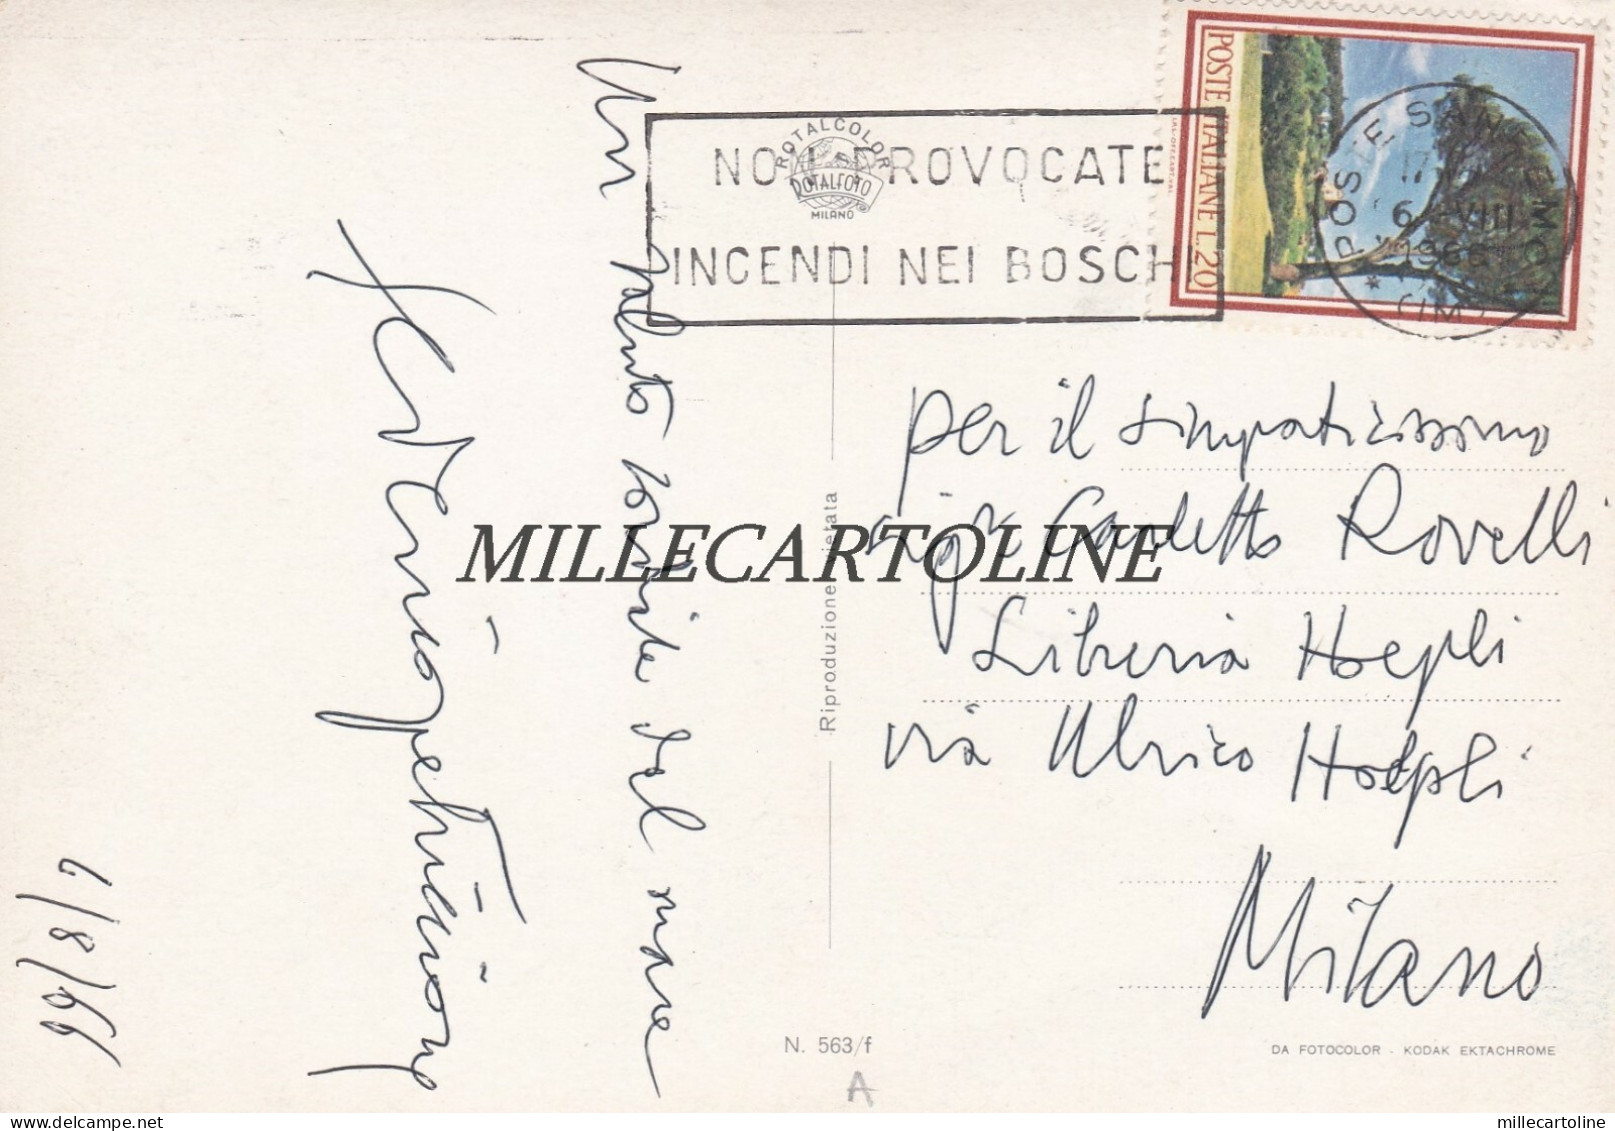 Un saluto
del mare
6/8/66
NON PROVOCATE
INCENDI NEI BOSCHI
ROTALCOLOR
ROTALFOTO
MILANO
POSTE ITALIANE L.20
POSTE SANREMO
17
6 VIII
1966
(IM)
per il simpaticissimo
Carletto Rovelli
Libreria Hoepli
via Ulrico Hoepli
Milano
Riproduzione vietata
MILLECARTOLINE
N. 563/f
A
DA FOTOCOLOR - KODAK EKTACHROME
millecartoline
millecartoline.com